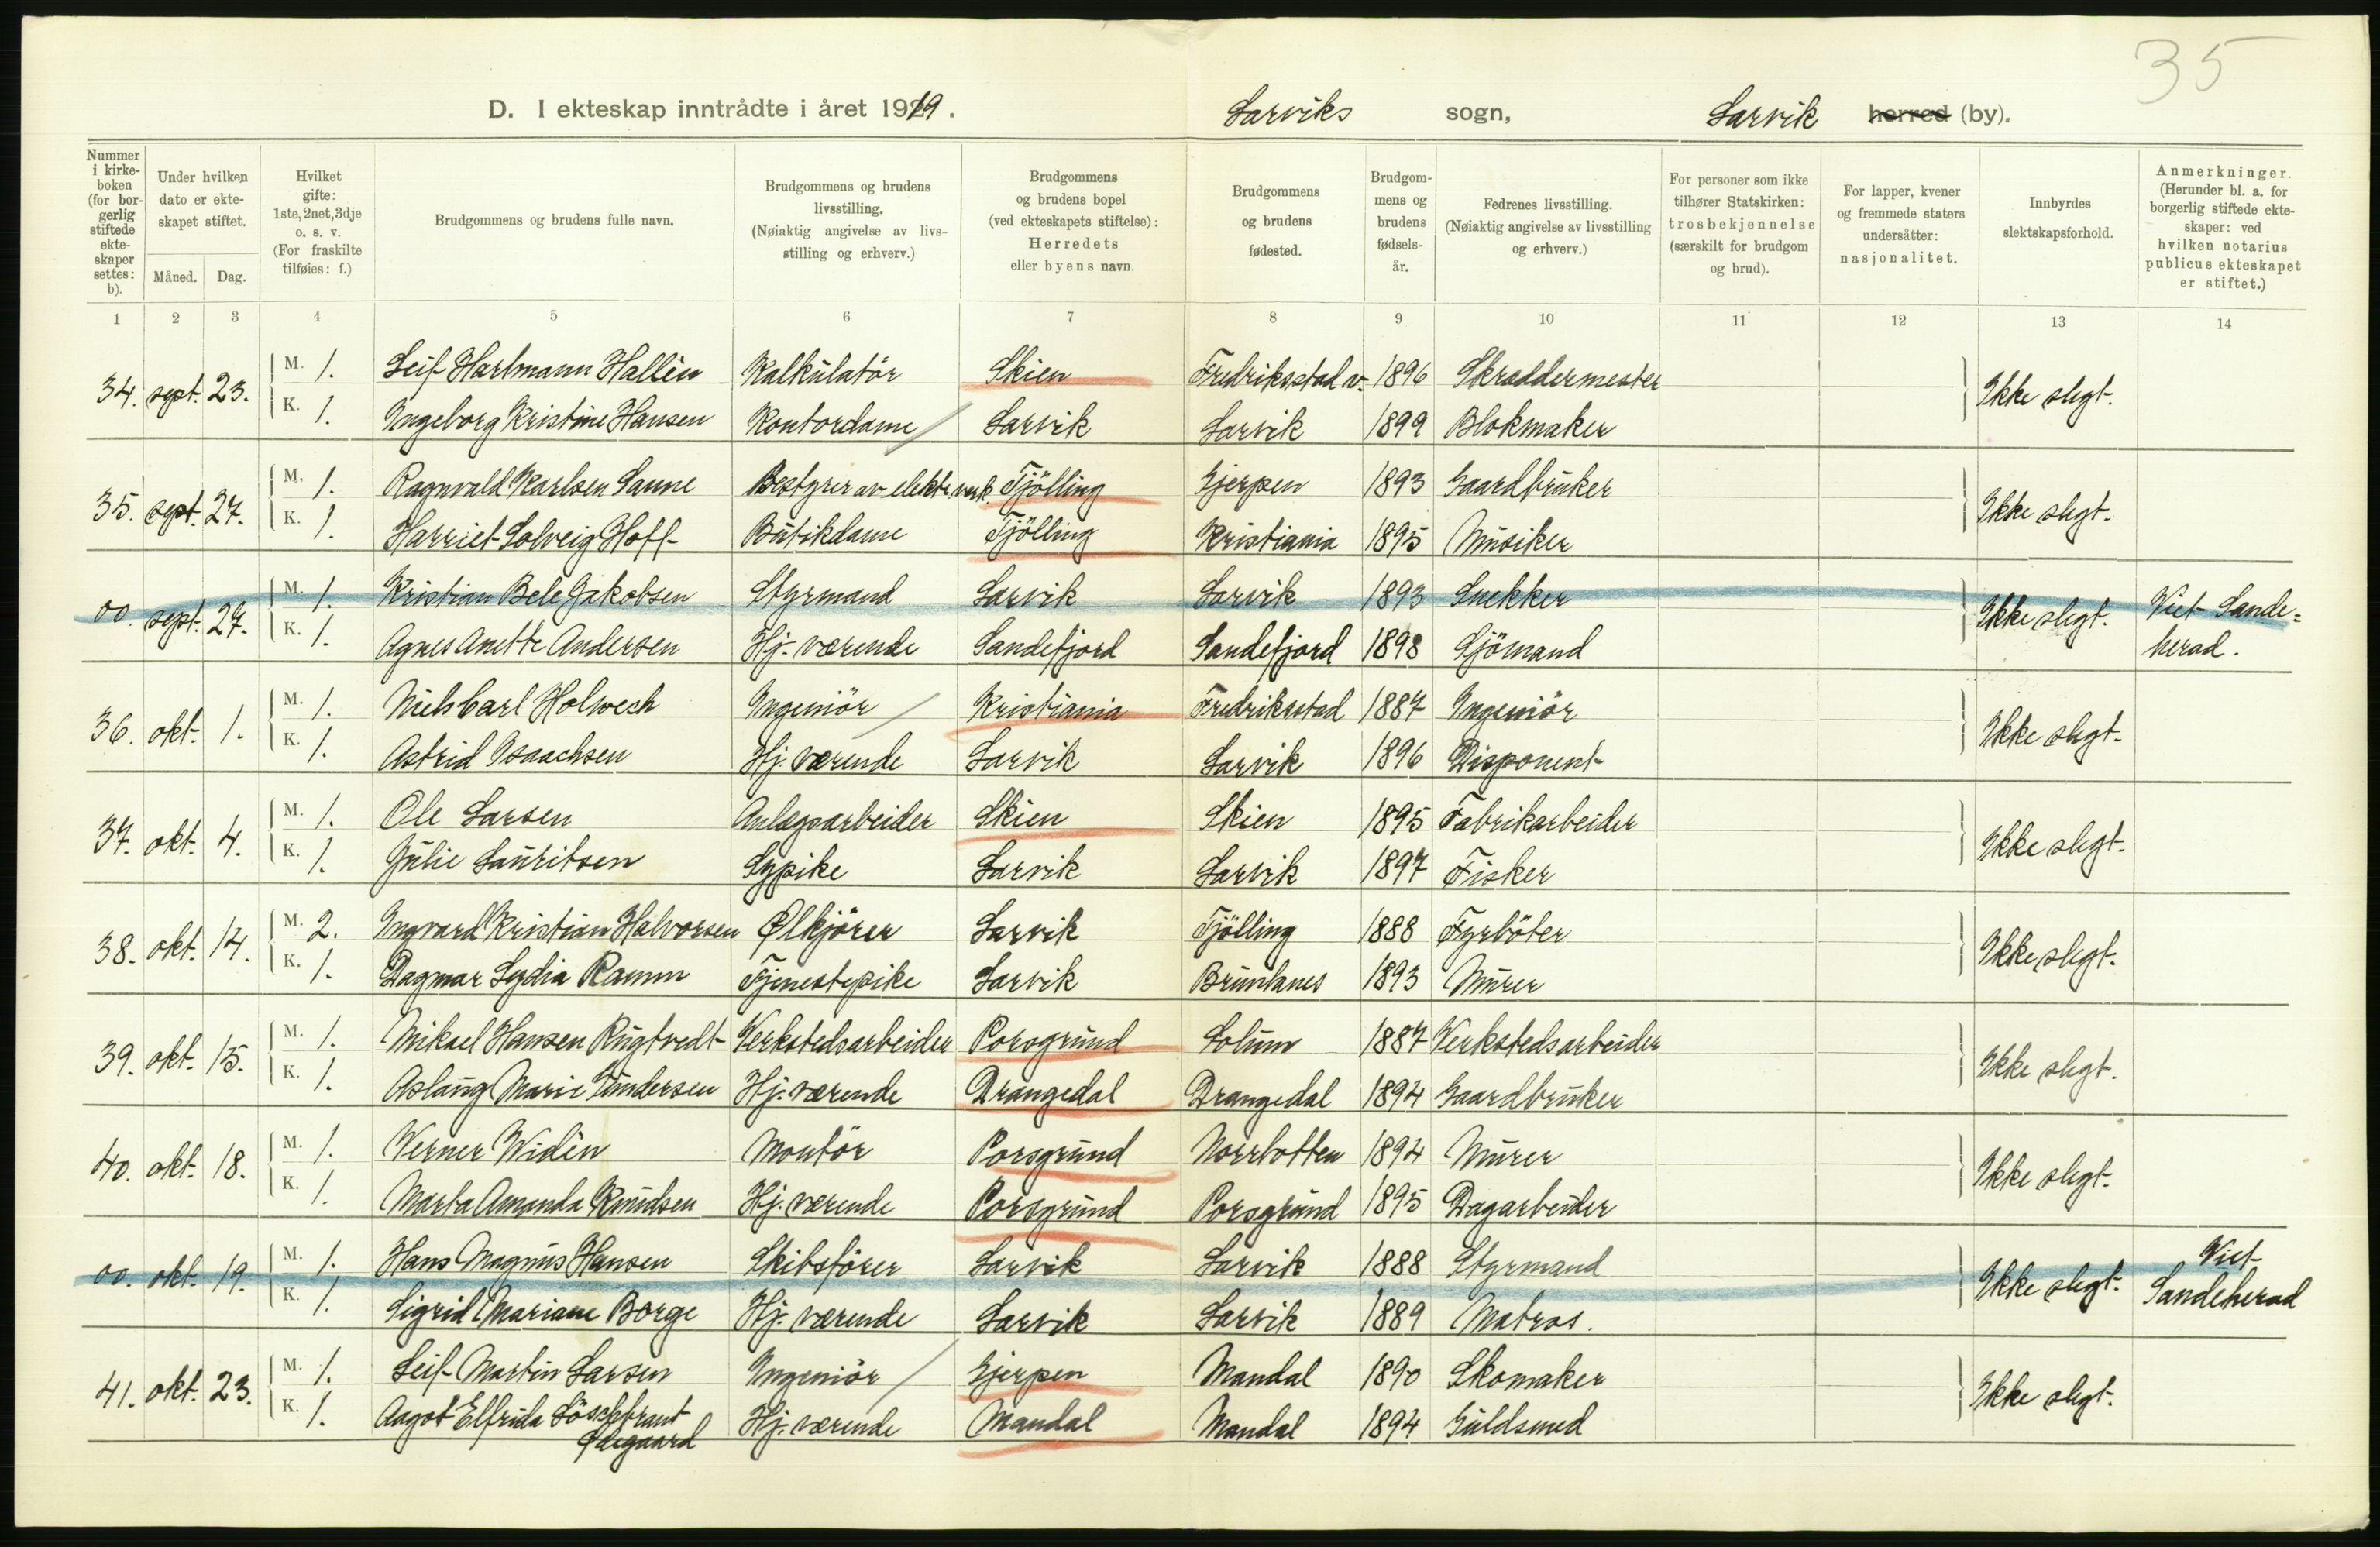 35
D. I ekteskap inntrådte i året 1919. Larviks sogn, Larvik herred (by).
Nummer i kirkeboken (for borgerlig stiftede ekteskaper settes: b). Under hvilken dato er ekteskapet stiftet. Måned. Dag. Hvilket gifte: 1ste, 2net, 3dje o. s. v. (For fraskilte tilføies: f.) Brudgommens og brudens fulle navn. Brudgommens og brudens livsstilling. (Nøiaktig angivelse av livsstilling og erhverv.) Brudgommens og brudens bopel (ved ekteskapets stiftelse): Herredets eller byens navn. Brudgommens og brudens fødested. Brudgommens og brudens fødselsår. Fedrenes livsstilling. (Nøiaktig angivelse av livsstilling og erhverv.) For personer som ikke tilhører Statskirken: trosbekjennelse (særskilt for brudgom og brud). For lapper, kvener og fremmede staters undersåtter: nasjonalitet. Innbyrdes slektskapsforhold. Anmerkninger. (Herunder bl. a. for borgerlig stiftede ekteskaper: ved hvilken notarius publicus ekteskapet er stiftet.)
1 2 3 4 5 6 7 8 9 10 11 12 13 14
34. sept. 23. M. 1. Leif Hartmann Hallèn Kalkulatör Skien Fredriksstad v. 1896 Skræddermester Ikke slegt.
K. 1. Ingeborg Kristine Hansen Kontordame Larvik Larvik 1899 Blokmaker
35. sept. 27. M. 1. Ragnvald Karlsen Sanne Bestyrer av elektr. verk Tjölling Gjerpen 1893 Gaardbruker Ikke slegt.
K. 1. Harriet Solveig Hoff Butikdame Tjölling Kristiania 1895 Musiker
00. sept. 27. M. 1. Kristian Bele Jakobsen Styrmand Larvik Larvik 1893 Snekker Ikke slegt. Viet Sande=
K. 1. Agnes Anette Andersen Hj. værende Sandefjord Sandefjord 1898 Sjömand herad.
36. okt. 1. M. 1. Niels Carl Holwech Ingeniör Kristiania Fredriksstad 1887 Ingeniör Ikke slegt.
K. 1. Astrid Isaachsen Hj. værende Larvik Larvik 1896 Disponent
37. okt. 4. M. 1. Ole Larsen Anlægsarbeider Skien Skien 1895 Fabrikarbeider Ikke slegt.
K. 1. Julie Lauritsen Sypike Larvik Larvik 1897 Fisker
38. okt. 14. M. 2. Ingvard Kristian Halvorsen Ølkjörer Larvik Tjölling 1888 Fyrböter Ikke slegt.
K. 1. Dagmar Lydia Ramm Tjenestepike Larvik Brunlanes 1893 Murer
39. okt. 15. M. 1. Mikael Hansen Rugtvedt Verkstedsarbeider Porsgrund Solum 1887 Verkstedsarbeider Ikke slegt.
K. 1. Aslaug Marie Gundersen Hj. værende Drangedal Drangedal 1894 Gaardbruker
40. okt. 18. M. 1. Verner Widèn Montör Porsgrund Norrbotten 1894 Murer Ikke slegt.
K. 1. Marta Amanda Knudsen Hj. værende Porsgrund Porsgrund 1895 Dagarbeider
00. okt. 19. M. 1. Hans Magnus Hansen Skibsförer Larvik Larvik 1888 Styrmand Ikke slegt. Viet
K. 1. Sigrid Mariane Borge Hj. værende Larvik Larvik 1889 Matros. Sandeherad
41. okt. 23. M. 1. Leif Martin Larsen Ingeniör Gjerpen Mandal 1890 Skomaker Ikke slegt.
K. 1. Aagot Elfrida Löschbrant Hj. værende Mandal Mandal 1894 Guldsmed
Ødegaard